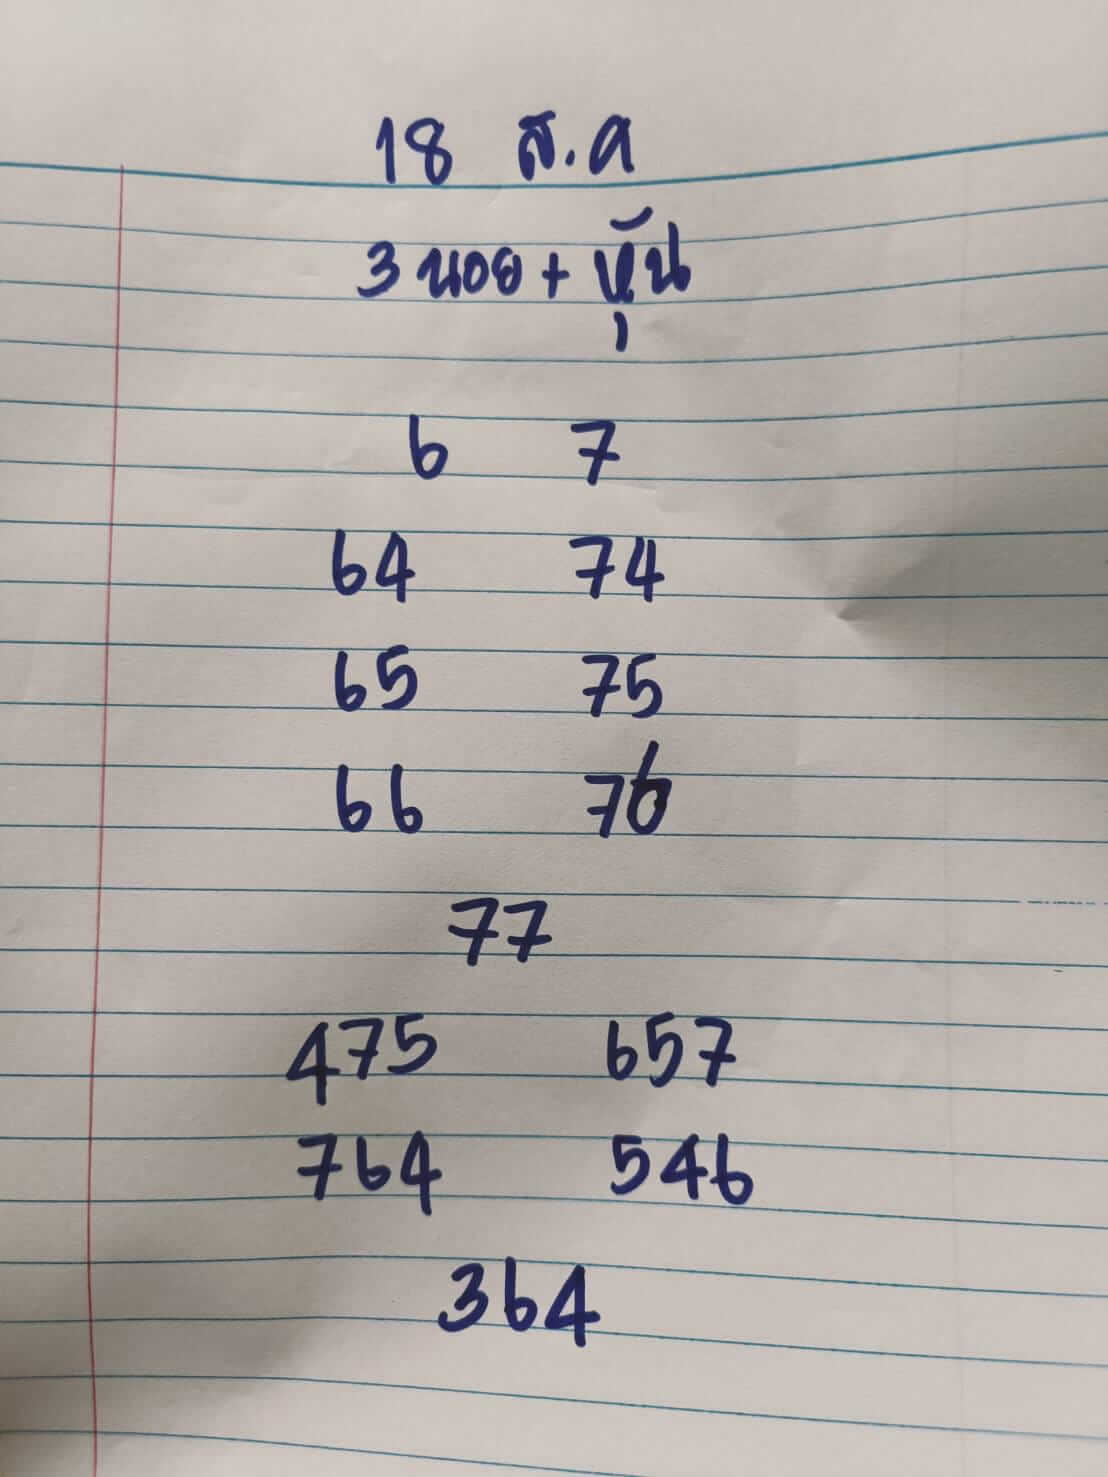 18 ส.ค
3 นอย + หุ้น
6 7
64 74
65 75
66 76
77
475 657
764 546
364